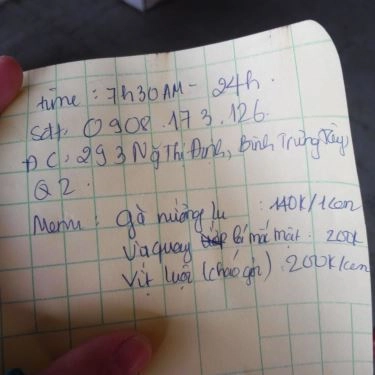 time : 7h30AM - 24h.
Sdt. 0908.173.126.
ĐC: 293 Ng Thị Định, Bình Trưng Tây,
Q2.
Menu : gà nướng lu : 140k/1con
Vịt quay lá mắc mật . 200k
Vịt luộc (cháo gỏi) : 200k/con